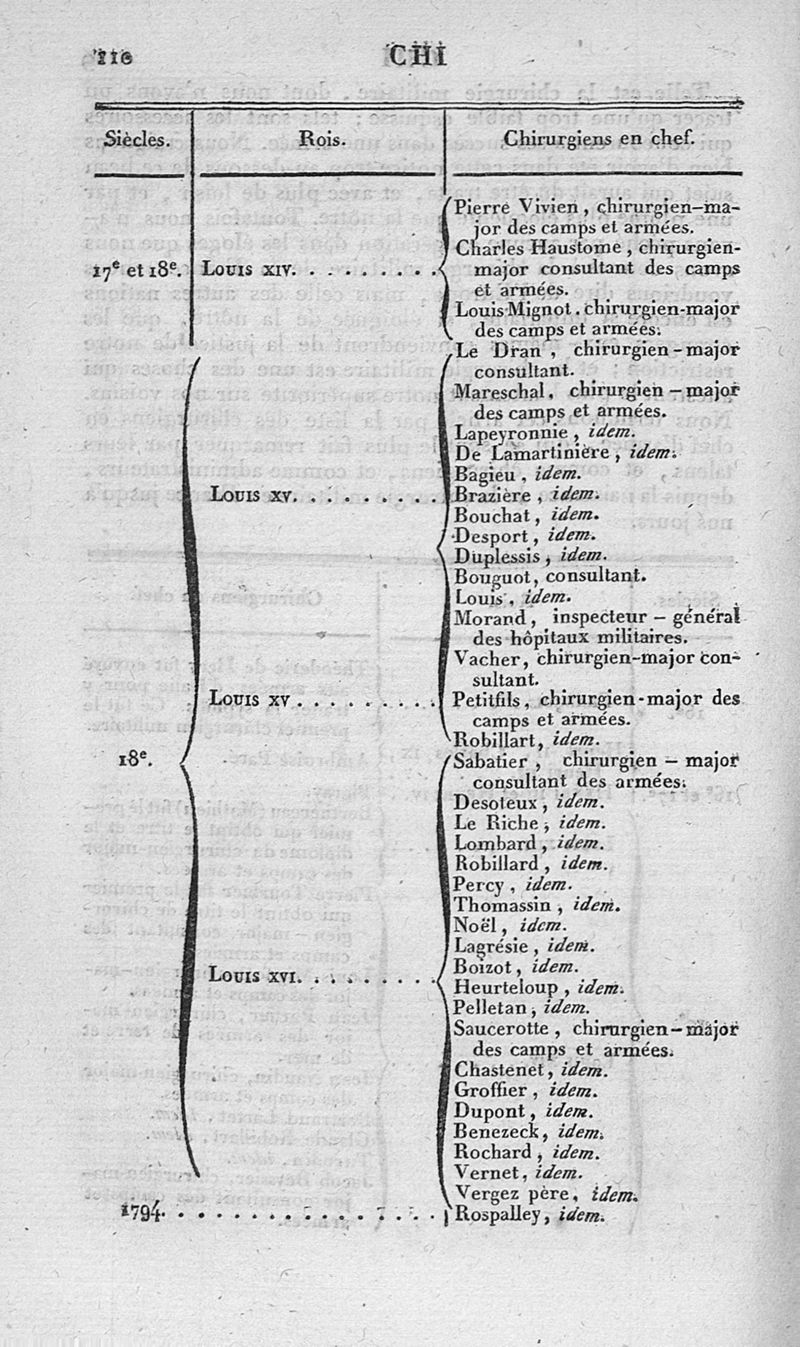 110
CHI
Siècles. Rois. Chirurgiens en chef.
Pierre Vivien, chirurgien-ma-
jor des camps et armées.
Charles Haustome, chirurgien-
17e et 18e. Louis XIV. . . . . . . . . major consultant des camps
et armées.
Louis Mignot. chirurgien-major
des camps et armées.
Le Dran, chirurgien-major
consultant.
Mareschal, chirurgien-major
des camps et armées.
Lapeyronnie, idem.
De Lamartinière, idem.
Bagieu, idem.
Louis XV. . . . . . . . . Brazière, idem.
Bouchat, idem.
Desport, idem.
Duplessis, idem.
Bouguot, consultant.
Louis, idem.
Morand, inspecteur-général
des hôpitaux militaires.
Vacher, chirurgien-major con-
sultant.
Louis XV . . . . . . . . . Petitfils, chirurgien-major des
camps et armées.
Robillart, idem.
18e. Sabatier, chirurgien-major
consultant des armées.
Desoteux, idem.
Le Riche, idem.
Lombard, idem.
Robillard, idem.
Percy, idem.
Thomassin, idem.
Noël, idem.
Lagrésie, idem.
Boizot, idem.
Louis XVI. . . . . . . . . Heurteloup, idem.
Pelletan, idem.
Saucerotte, chirurgien-major
des camps et armées.
Chastenet, idem.
Groffier, idem.
Dupont, idem.
Benezeck, idem.
Rochard, idem.
Vernet, idem.
Vergez père, idem.
1794. . . . . . . . . . . . . . . Rospalley, idem.